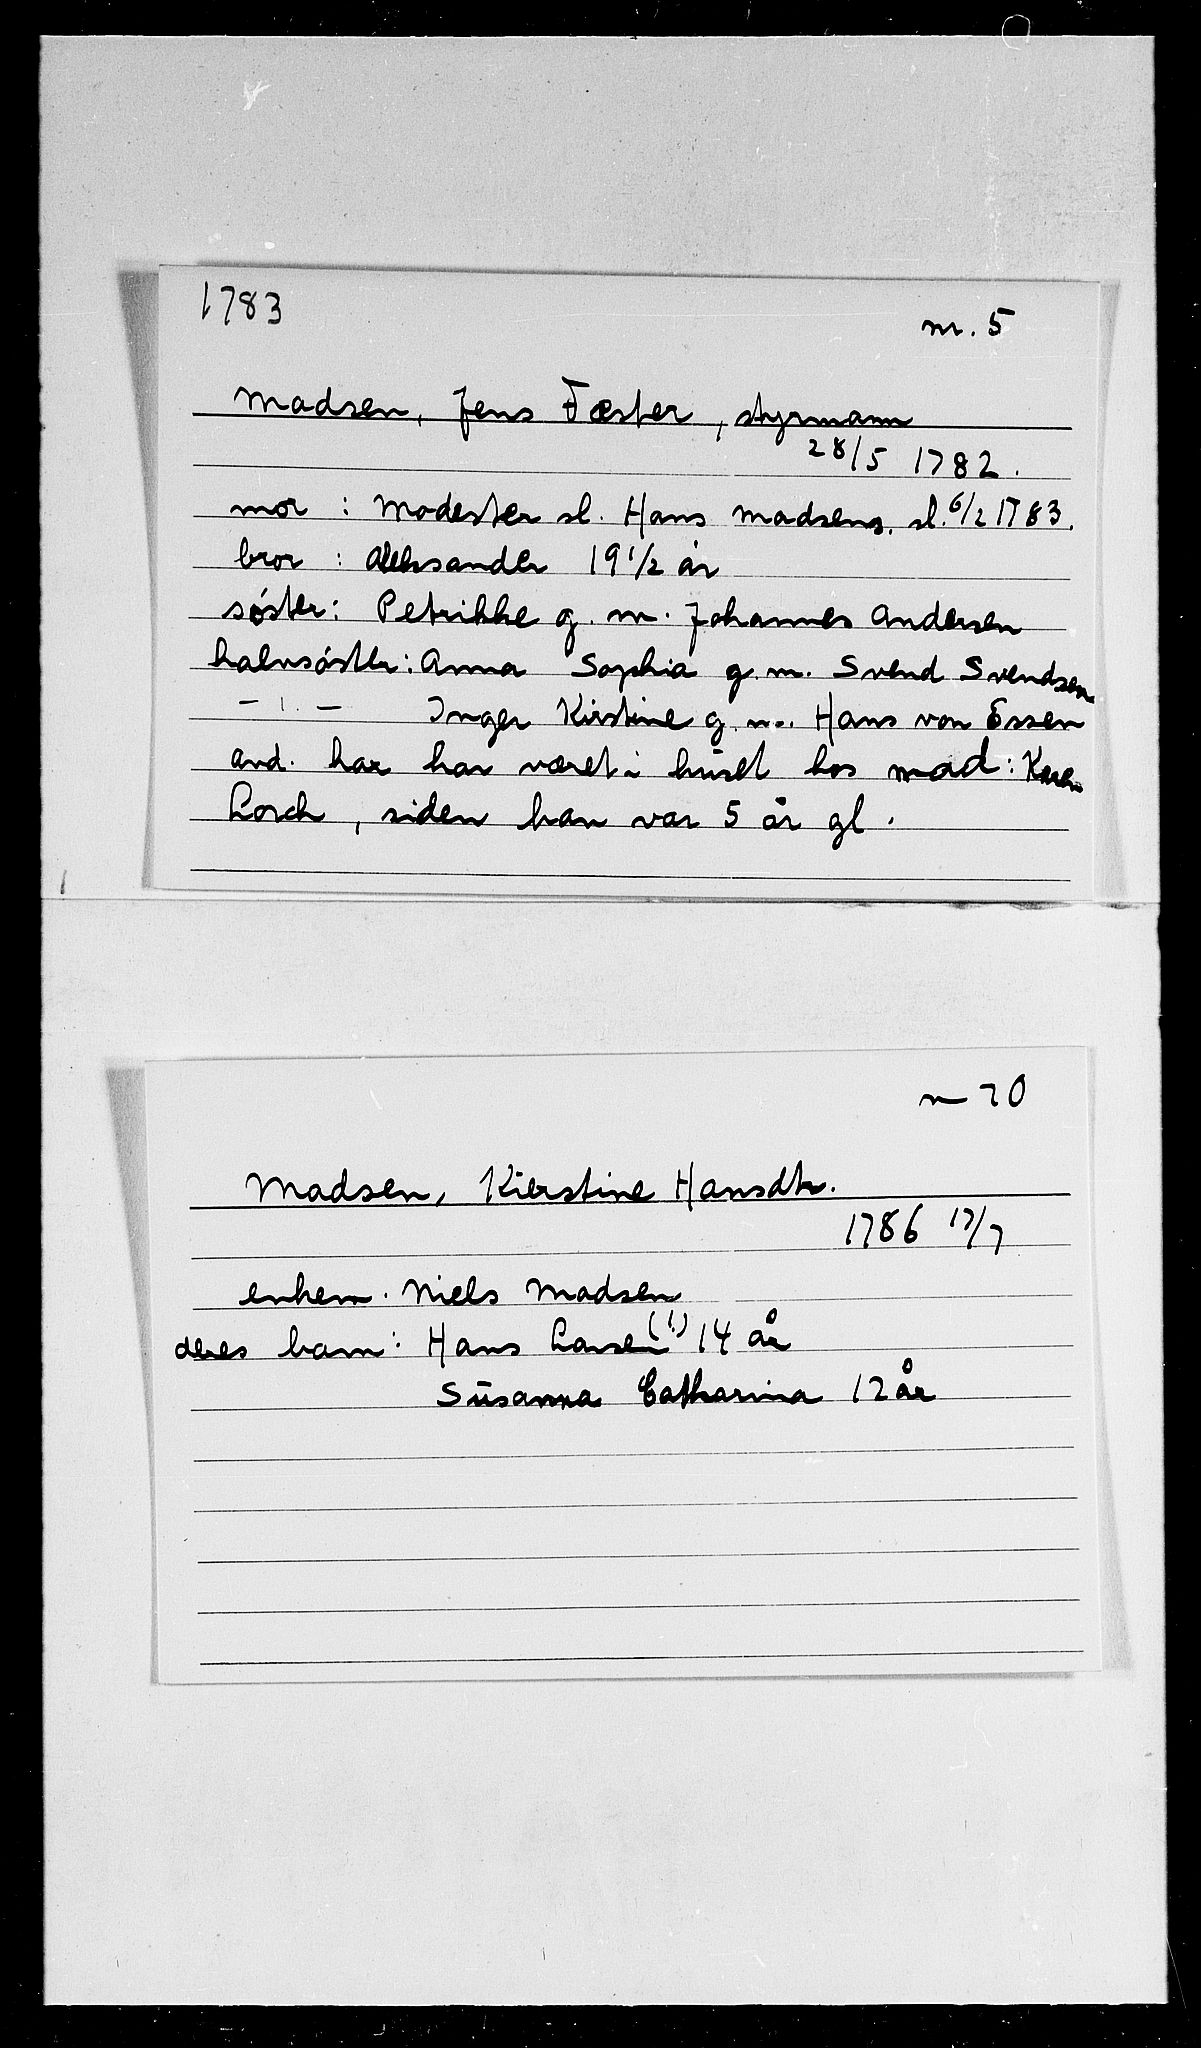 1783
nr. 5
Madsen, Jens Fæster, styrmann
28/5 1782.
mor : Modester sl. Hans Madsens. sl. 6/2 1783.
bror : Aleksander 19 1/2 år
søster: Petrikke g. m. Johannes Andersen
halvsøster: Anna Sophia g. m. Svend Svendsen
- " - Inger Kirstine g. m. Hans von Essen
avd. har har været i huset hos mad: Karen
Lorch, siden han var 5 år gl.
nr 20
Madsen, Kierstine Hansdtr.
1786 17/7
enkem. Niels Madsen
deres barn: Hans Larsen (!) 14 år
Susanna Catharina 12 år